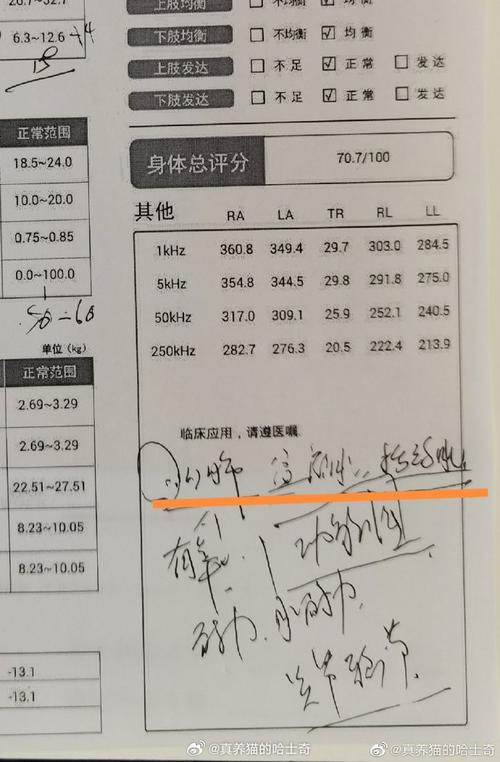 20.7~32.7
6.3~12.6
正常范围
18.5~24.0
10.0~20.0
0.75~0.85
0.0~100.0
50-60
单位(kg)
正常范围
2.69~3.29
2.69~3.29
22.51~27.51
8.23~10.05
8.23~10.05
-13.1
-13.1
上肢均衡 不均衡 均衡
下肢均衡 不均衡 均衡
上肢发达 不足 正常 发达
下肢发达 不足 正常 发达
身体总评分 70.7/100
其他 RA LA TR RL LL
1kHz 360.8 349.4 29.7 303.0 284.5
5kHz 354.8 344.5 29.8 291.8 275.0
50kHz 317.0 309.1 25.9 252.1 240.5
250kHz 282.7 276.3 20.5 222.4 213.9
临床应用，请遵医嘱
有氧
耐力
@真养猫的哈士奇
@真养猫的哈士奇